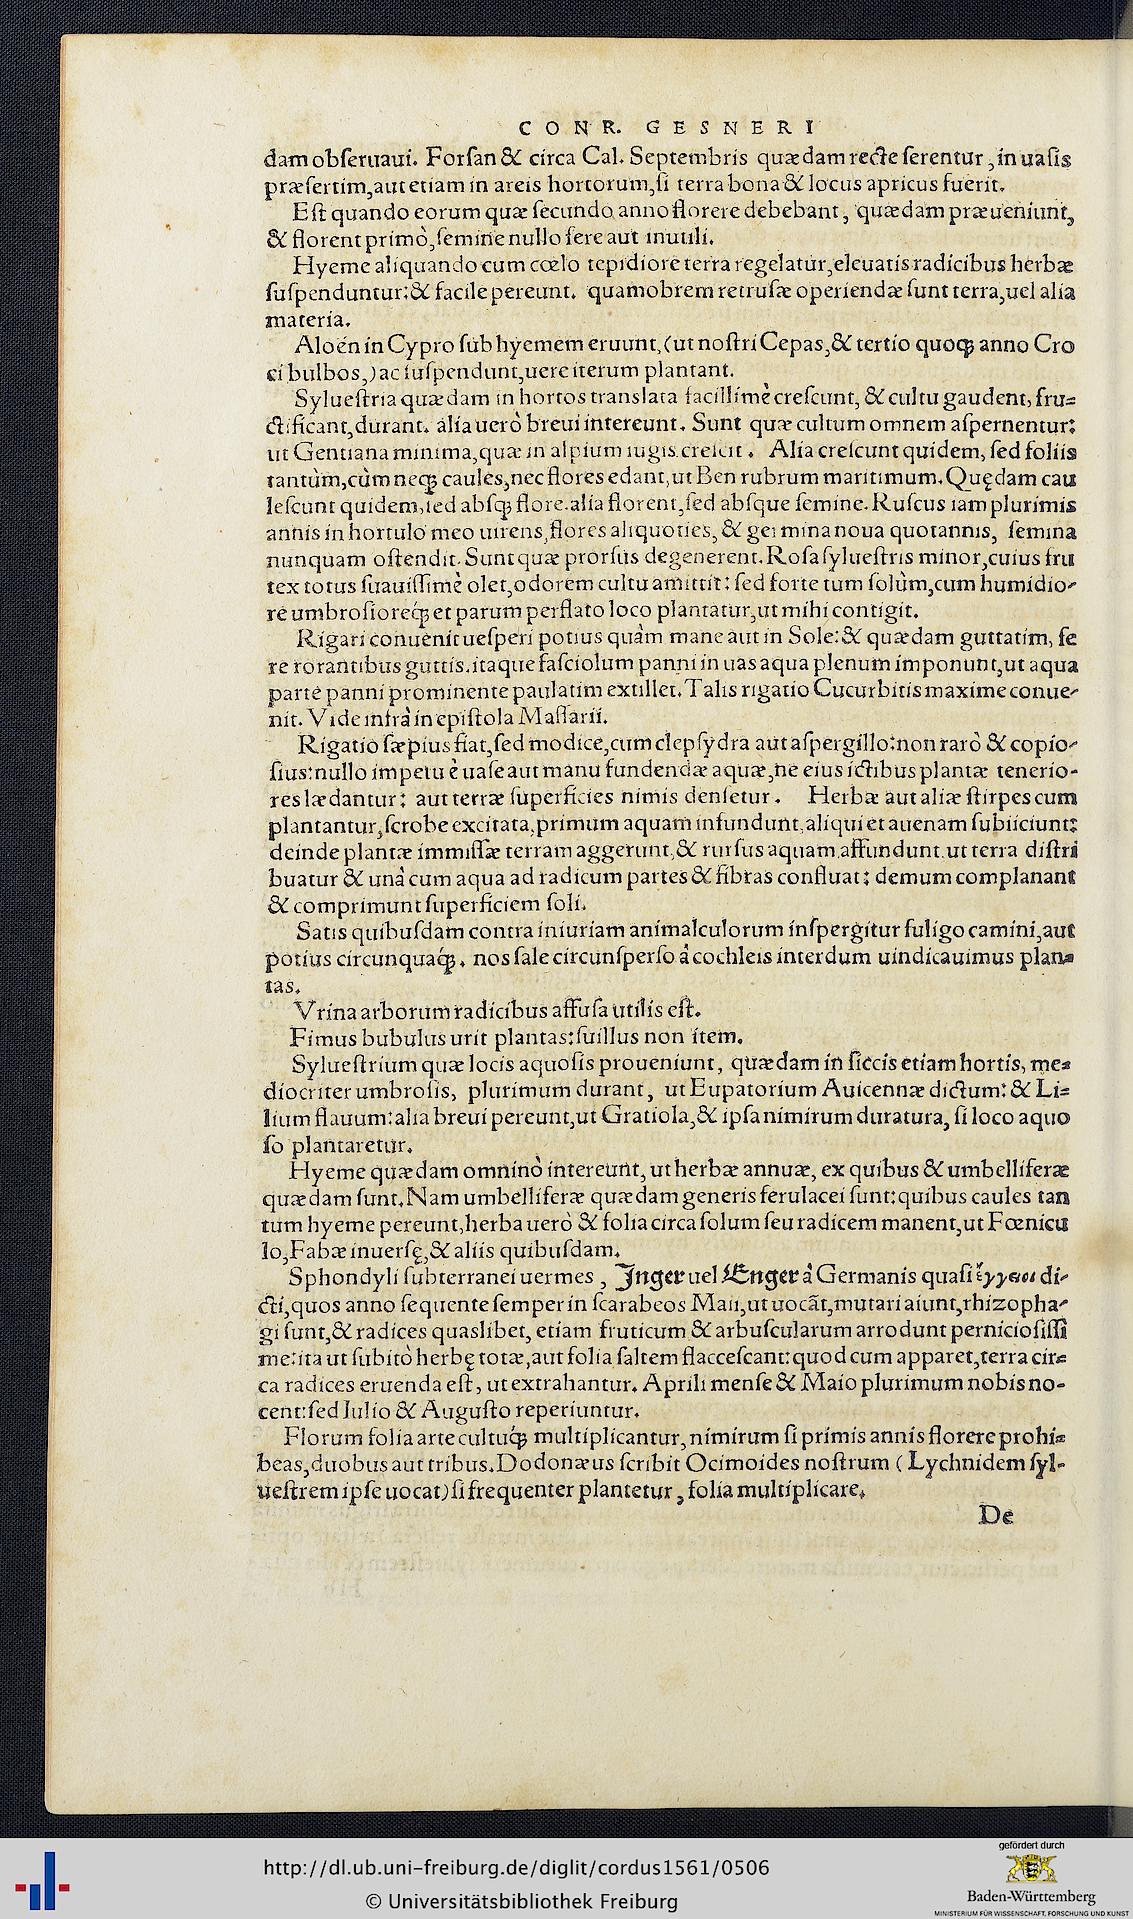 CONR. GESNERI
dam obſeruaui. Forſan & circa Cal. Septembris quædam recte ſerentur, in uaſis
præſertim, aut etiam in areis hortorum, ſi terra bona & locus apricus fuerit.
Eſt quando eorum quæ ſecundo anno florere debebant, quædam præueniunt,
& florent primò, ſemine nullo fere aut inutili.
Hyeme aliquando cum cœlo tepidiore terra regelatur, eleuatis radicibus herbæ
ſuſpenduntur: & facile pereunt. quamobrem retruſæ operiendæ ſunt terra, uel alia
materia.
Aloën in Cypro ſub hyemem eruunt, (ut noſtri Cepas, & tertio quoq; anno Cro
ci bulbos,) ac ſuſpendunt, uere iterum plantant.
Sylueſtria quædam in hortos translata facillimè creſcunt, & cultu gaudent, fru=
ctificant, durant. alia uerò breui intereunt. Sunt quæ cultum omnem aſpernentur:
ut Gentiana minima, quæ in alpium iugis creſcit. Alia creſcunt quidem, ſed foliis
tantùm, cùm neq; caules, nec flores edant, ut Ben rubrum maritimum. Quędam cau
leſcunt quidem, ſed abſq; flore. alia florent, ſed abſque ſemine. Ruſcus iam plurimis
annis in hortulo meo uirens, flores aliquoties, & germina noua quotannis, ſemina
nunquam oſtendit. Sunt quæ prorſus degenerent. Roſa ſylueſtris minor, cuius fru
tex totus ſuauiſſimè olet, odorem cultu amittit: ſed forte tum ſolùm, cum humidio-
re umbroſioreq́; et parum perflato loco plantatur, ut mihi contigit.
Rigari conuenit ueſperi potius quàm mane aut in Sole: & quædam guttatim, fe
re rorantibus guttis. itaque faſciolum panni in uas aqua plenum imponunt, ut aqua
parte panni prominente paulatim extillet. Talis rigatio Cucurbitis maxime conue-
nit. Vide infrà in epiſtola Maſſarii.
Rigatio ſæpius fiat, ſed modice, cum clepſydra aut aſpergillo: non rarò & copio-
ſius: nullo impetu è uaſe aut manu fundendæ aquæ, ne eius ictibus plantæ tenerio-
res lædantur: aut terræ ſuperficies nimis denſetur. Herbæ aut aliæ ſtirpes cum
plantantur, ſcrobe excitata, primum aquam infundunt, aliqui et auenam ſubiiciunt:
deinde plantæ immiſſæ terram aggerunt, & rurſus aquam affundunt. ut terra diſtri
buatur & unà cum aqua ad radicum partes & fibras confluat: demum complanant
& comprimunt ſuperficiem ſoli.
Satis quibuſdam contra iniuriam animalculorum inſpergitur fuligo camini, aut
potius circunquaq́;. nos ſale circunſperſo à cochleis interdum uindicauimus plan=
tas.
Vrina arborum radicibus affuſa utilis eſt.
Fimus bubulus urit plantas: ſuillus non item.
Sylueſtrium quæ locis aquoſis proueniunt, quædam in ſiccis etiam hortis, me=
diocriter umbroſis, plurimum durant, ut Eupatorium Auicennæ dictum: & Li=
lium flauum: alia breui pereunt, ut Gratiola, & ipſa nimirum duratura, ſi loco aquo
ſo plantaretur.
Hyeme quædam omninò intereunt, ut herbæ annuæ, ex quibus & umbelliferæ
quædam ſunt. Nam umbelliferæ quædam generis ferulacei ſunt: quibus caules tan
tum hyeme pereunt, herba uerò & folia circa ſolum ſeu radicem manent, ut Fœnicu
lo, Fabæ inuerſę, & aliis quibuſdam.
Sphondyli ſubterranei uermes, Inger uel Enger à Germanis quaſi ἔγγειοι di-
cti, quos anno ſequente ſemper in ſcarabeos Maii, ut uocāt, mutari aiunt, rhizopha-
gi ſunt, & radices quaslibet, etiam fruticum & arbuſcularum arrodunt pernicioſiſſi
me: ita ut ſubitò herbę totæ, aut folia ſaltem flacceſcant: quod cum apparet, terra cir=
ca radices eruenda eſt, ut extrahantur. Aprili menſe & Maio plurimum nobis no-
cent: ſed Iulio & Auguſto reperiuntur.
Florum folia arte cultuq́; multiplicantur, nimirum ſi primis annis florere prohi=
beas, duobus aut tribus. Dodonæus ſcribit Ocimoides noſtrum (Lychnidem ſyl-
ueſtrem ipſe uocat) ſi frequenter plantetur, folia multiplicare.
De
http://dl.ub.uni-freiburg.de/diglit/cordus1561/0506
© Universitätsbibliothek Freiburg
gefördert durch
Baden-Württemberg
MINISTERIUM FÜR WISSENSCHAFT, FORSCHUNG UND KUNST